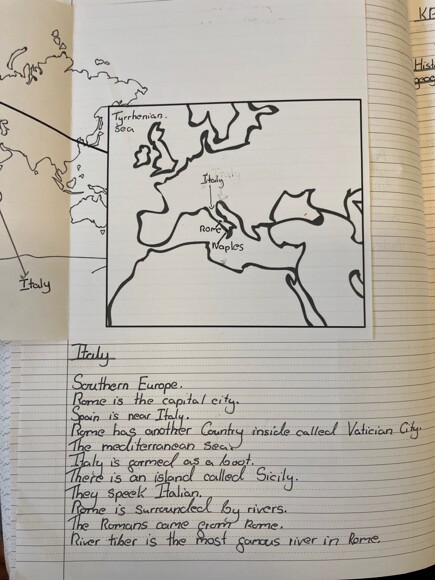 KE
Hist
geog
Tyrrhenian
sea
Italy
Rome
Naples
Italy
Italy
Southern Europe.
Rome is the capital city.
Spain is near Italy.
Rome has another Country inside called Vatician City.
The mediterranean sea
Italy is formed as a boot.
There is an island called Sicily.
They speek Italian.
Rome is surrounded by rivers.
The Romans came from Rome.
River tiber is the most famous river in Rome.